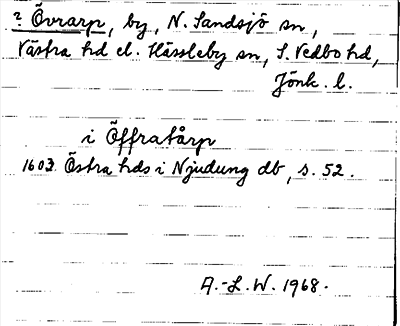 ? Övrarp, by, N. Sandsjö sn,
Västra hd el. Hässleby sn, S. Vedbo hd,
Jönk. l.
i Öffratårp
1603 Östra hds i Njudung db, s. 52.
A.-L.W. 1968.